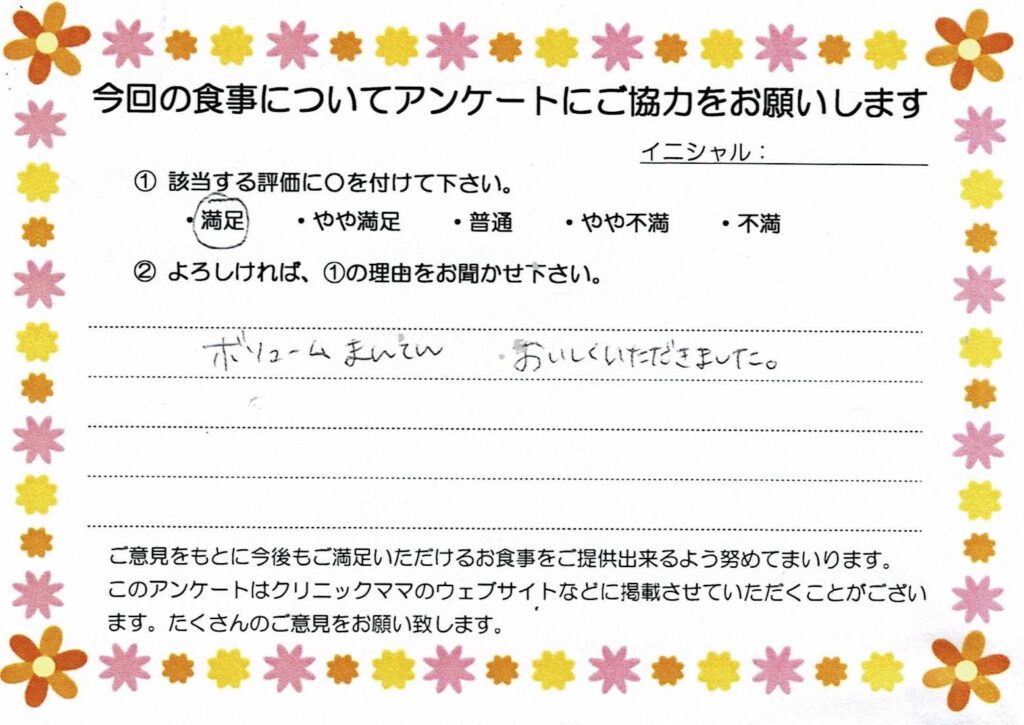 今回の食事についてアンケートにご協力をお願いします
イニシャル：
① 該当する評価に〇を付けて下さい。
・満足 ・やや満足 ・普通 ・やや不満 ・不満
② よろしければ、①の理由をお聞かせ下さい。
ボリュームまんてん おいしくいただきました。
ご意見をもとに今後もご満足いただけるお食事をご提供出来るよう努めてまいります。
このアンケートはクリニックママのウェブサイトなどに掲載させていただくことがござい
ます。たくさんのご意見をお願い致します。